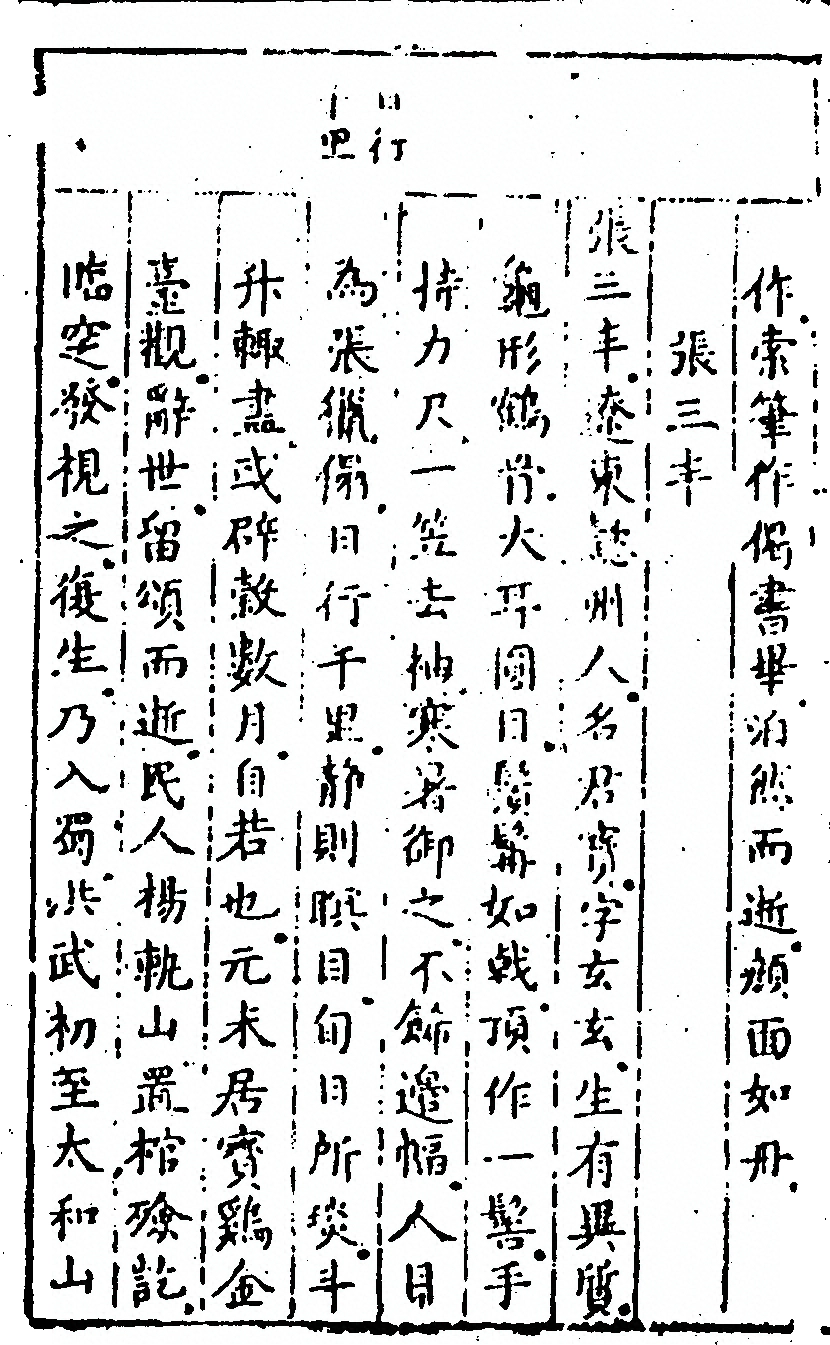 日行
千里
作索筆作偈書畢泊然而逝顏面如丹
張三丰
張三丰遼東懿州人名君寶字玄玄生有異質
龜形鶴骨大耳圓目鬚髯如戟頂作一髻手
持刀尺一笠去衲寒暑御之不飾邊幅人目
為張獵傝日行千里靜則瞑目旬日所啖斗
升輙盡或辟穀數月自若也元末居寶鷄金
臺觀辭世留頌而逝民人楊軌山置棺殮訖
臨窆發視之復生乃入蜀洪武初至太和山